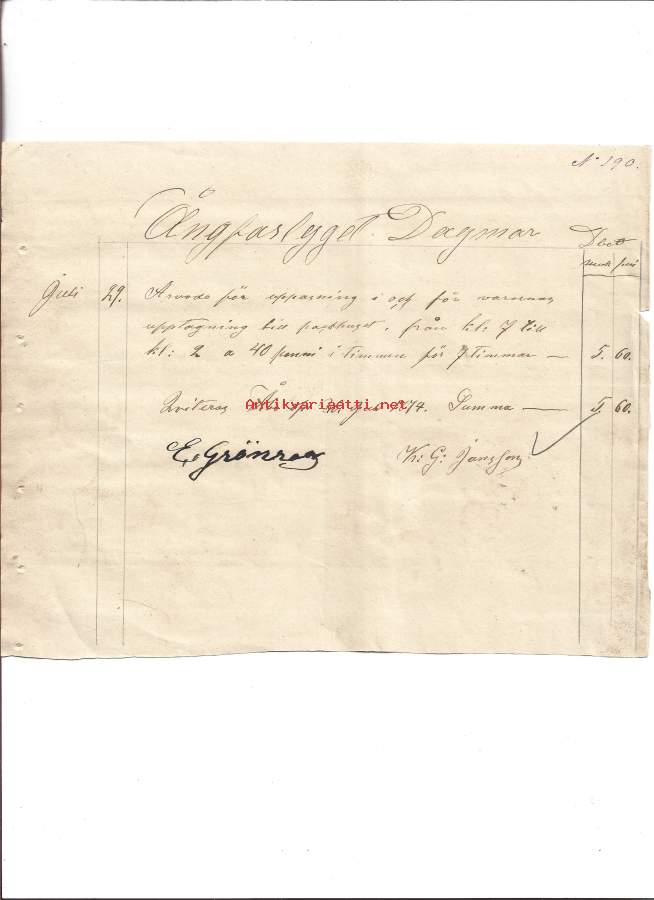 No 190.
Ångfartyget Dagmar
Debet
mark peni
Juli 29. Arvode för uppasning i och för varornas
upptagning till packhuset, från kl: 7 till
kl: 2 a 40 penni i timmen för 7 timmar — 5. 60.
Qviteras Åbo Summa — 5. 60.
E Grönroos K: G: Jansson
Antikvariaatti.net